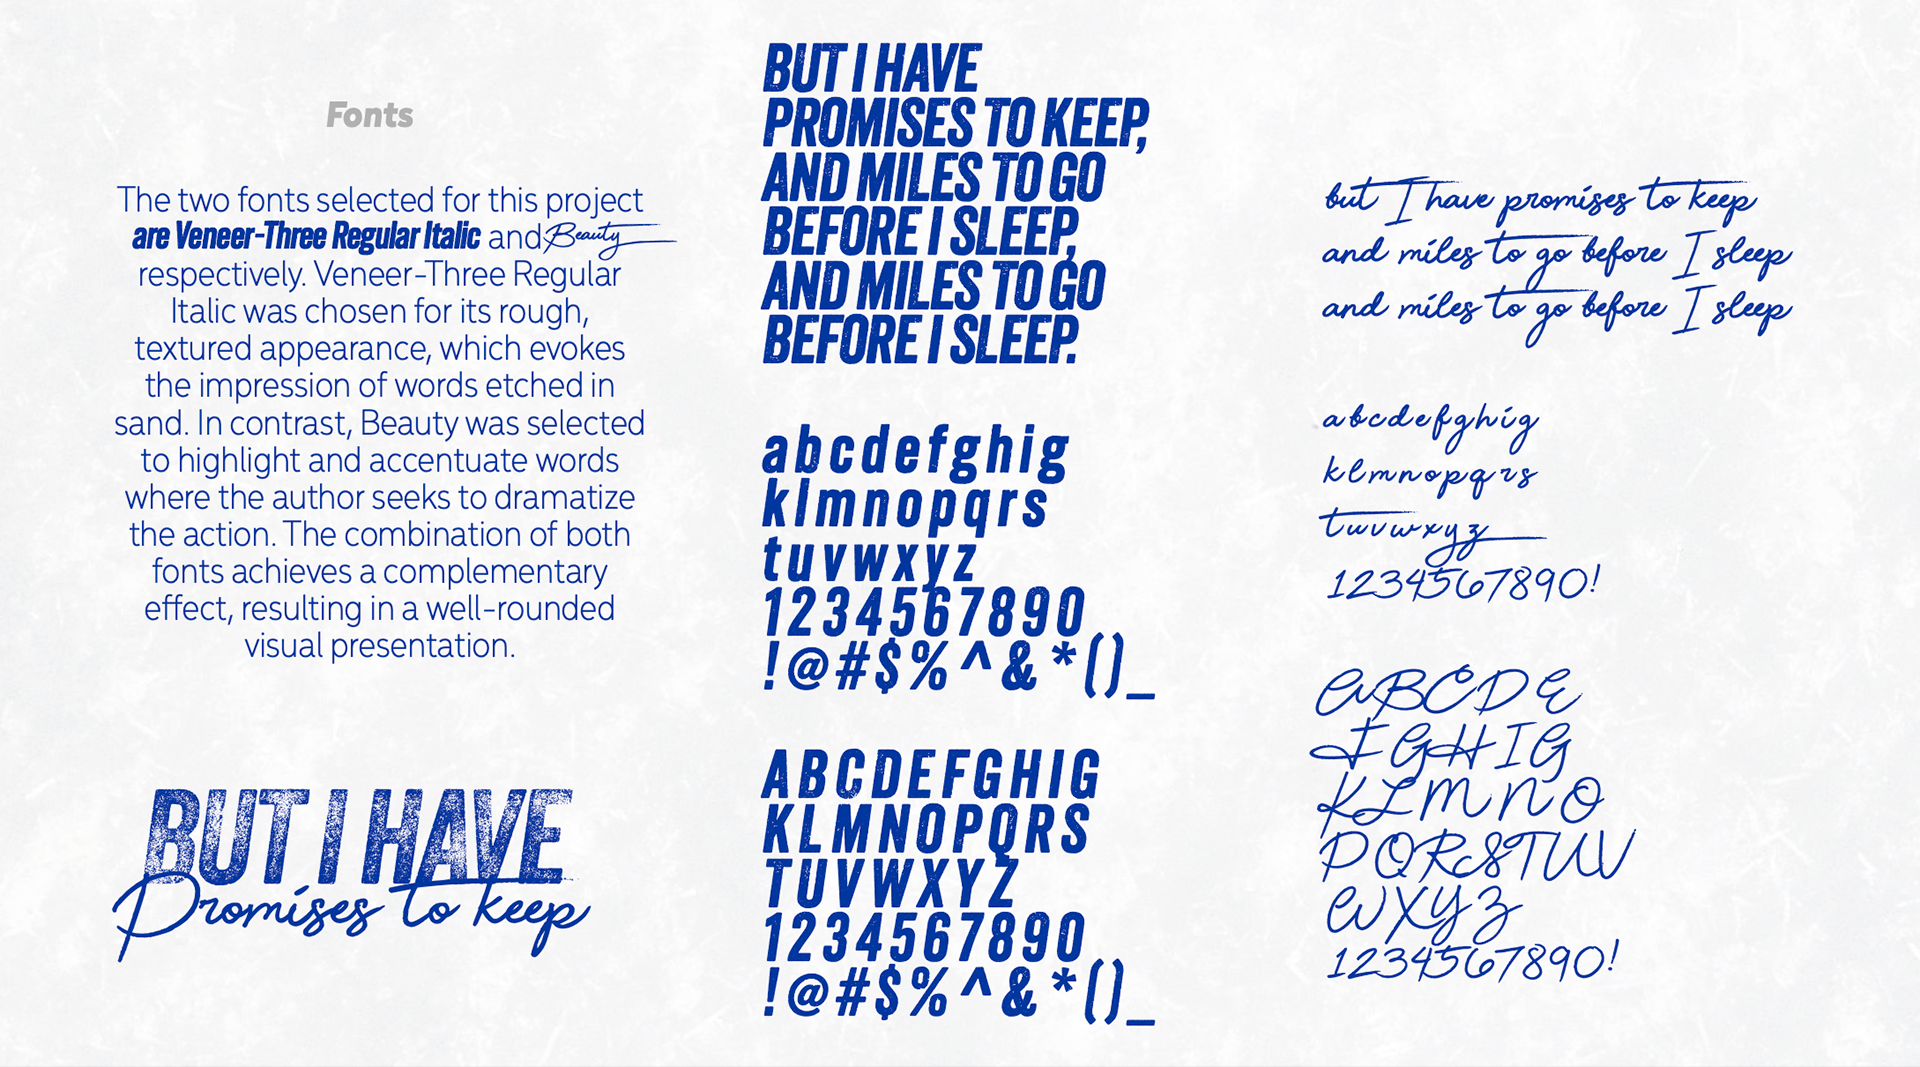 Fonts
The two fonts selected for this project
are Veneer-Three Regular Italic and Beauty
respectively. Veneer-Three Regular
Italic was chosen for its rough,
textured appearance, which evokes
the impression of words etched in
sand. In contrast, Beauty was selected
to highlight and accentuate words
where the author seeks to dramatize
the action. The combination of both
fonts achieves a complementary
effect, resulting in a well-rounded
visual presentation.
BUT I HAVE
Promises to keep
BUT I HAVE
PROMISES TO KEEP,
AND MILES TO GO
BEFORE I SLEEP,
AND MILES TO GO
BEFORE I SLEEP.
abcdefghig
klmnopqrs
tuvwxyz
1234567890
!@#$%^&*()_
ABCDEFGHIG
KLMNOPQRS
TUVWXYZ
1234567890
!@#$%^&*()_
but I have promises to keep
and miles to go before I sleep
and miles to go before I sleep
abcdefghig
klmnopqrs
tuvwxyz
1234567890!
ABCDE
FGHIG
KLMNO
PQRSTUV
WXYZ
1234567890!